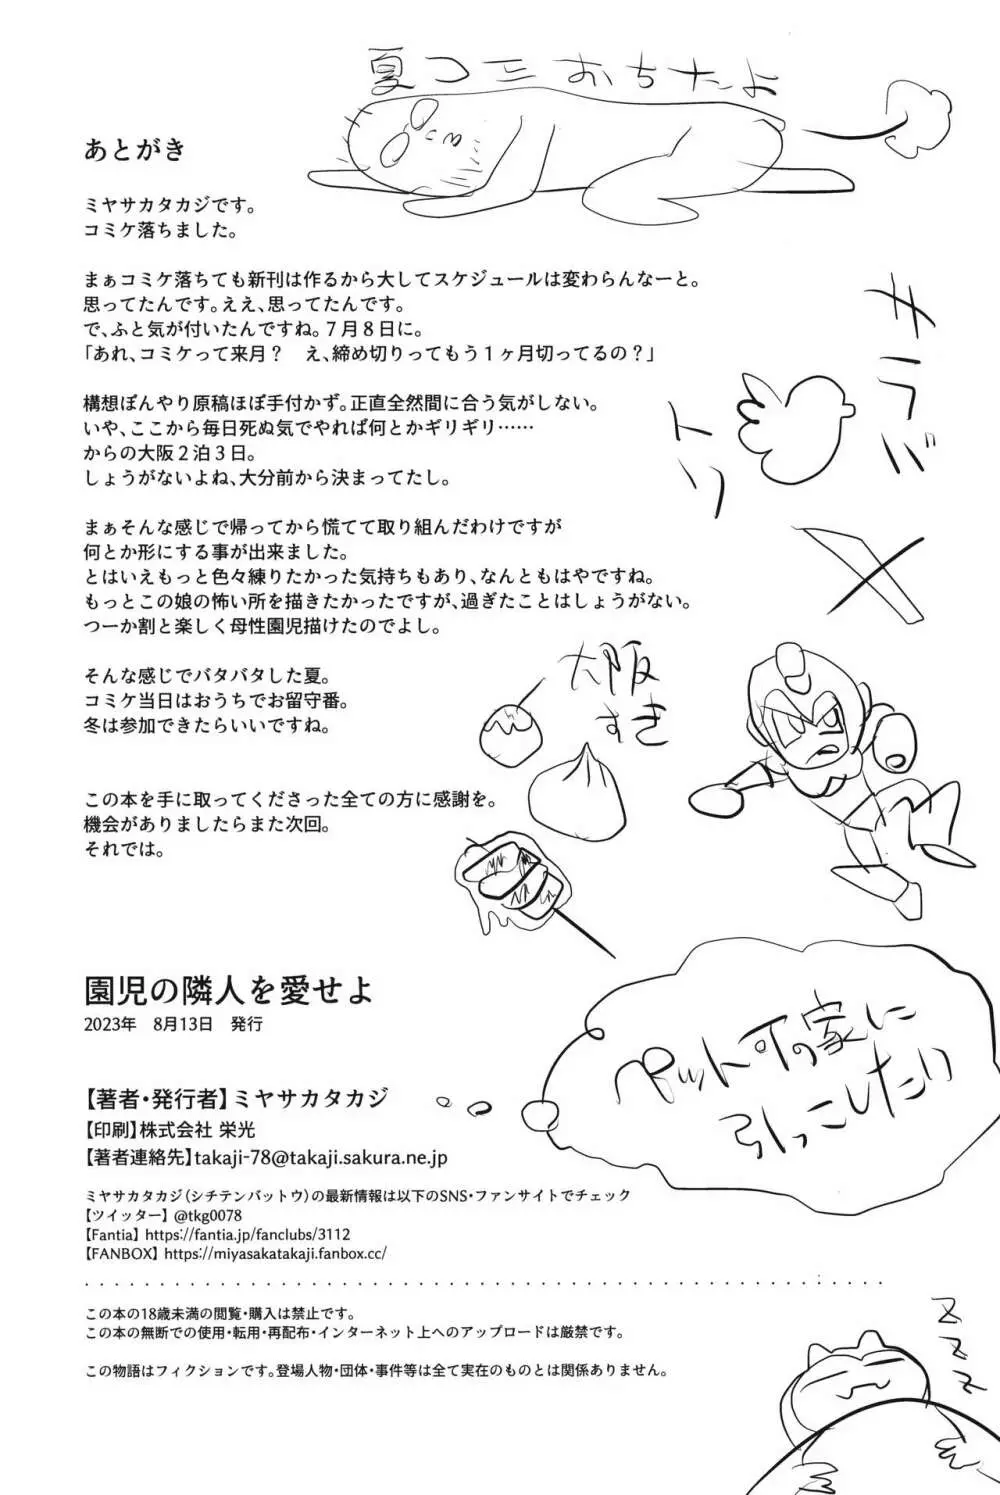 夏コミおちたよ
あとがき
ミヤサカタカジです。
コミケ落ちました。
まぁコミケ落ちても新刊は作るから大してスケジュールは変わらんなーと。
思ってたんです。ええ、思ってたんです。
で、ふと気が付いたんですね。７月８日に。
「あれ、コミケって来月？　え、締め切りってもう１ヶ月切ってるの？」
構想ぼんやり原稿ほぼ手付かず。正直全然間に合う気がしない。
いや、ここから毎日死ぬ気でやれば何とかギリギリ……
からの大阪２泊３日。
しょうがないよね、大分前から決まってたし。
まぁそんな感じで帰ってから慌てて取り組んだわけですが
何とか形にする事が出来ました。
とはいえもっと色々練りたかった気持ちもあり、なんともはやですね。
もっとこの娘の怖い所を描きたかったですが、過ぎたことはしょうがない。
つーか割と楽しく母性園児描けたのでよし。
そんな感じでバタバタした夏。
コミケ当日はおうちでお留守番。
冬は参加できたらいいですね。
この本を手に取ってくださった全ての方に感謝を。
機会がありましたらまた次回。
それでは。
サラバ
トリ
大阪
すき
ペット可の家に
引っこしたい
園児の隣人を愛せよ
2023年　8月13日　発行
【著者・発行者】ミヤサカタカジ
【印刷】株式会社 栄光
【著者連絡先】takaji-78@takaji.sakura.ne.jp
ミヤサカタカジ（シチテンバットウ）の最新情報は以下のSNS・ファンサイトでチェック
【ツイッター】@tkg0078
【Fantia】https://fantia.jp/fanclubs/3112
【FANBOX】https://miyasakatakaji.fanbox.cc/
この本の18歳未満の閲覧・購入は禁止です。
この本の無断での使用・転用・再配布・インターネット上へのアップロードは厳禁です。
この物語はフィクションです。登場人物・団体・事件等は全て実在のものとは関係ありません。
Z
Z
Z